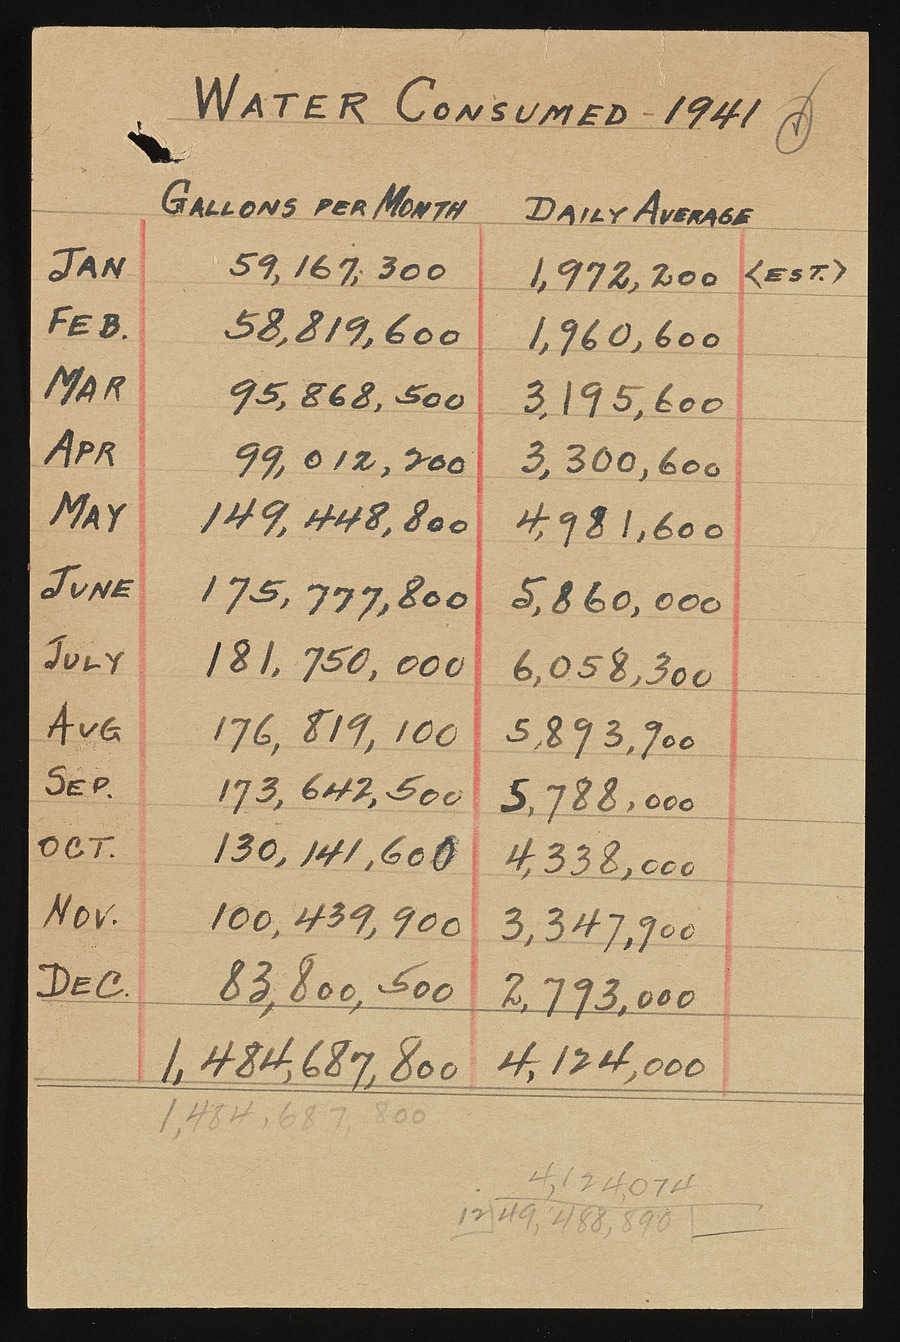 WATER CONSUMED - 1941
GALLONS PER MONTH DAILY AVERAGE
JAN 59,167,300 1,972,200 (EST.)
FEB. 58,819,600 1,960,600
MAR 95,868,500 3,195,600
APR 99,012,200 3,300,600
MAY 149,448,800 4,981,600
JUNE 175,777,800 5,860,000
JULY 181,750,000 6,058,300
AUG 176,819,100 5,893,900
SEP. 173,642,500 5,788,000
OCT. 130,141,600 4,338,000
NOV. 100,439,900 3,347,900
DEC. 83,800,500 2,793,000
1,484,687,800 4,124,000
1,484,687,800
4,124,074
12 49,488,890